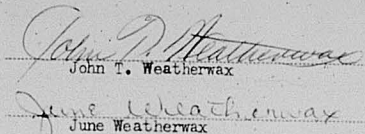 John T. Weatherwax
John T. Weatherwax
June Weatherwax
June Weatherwax